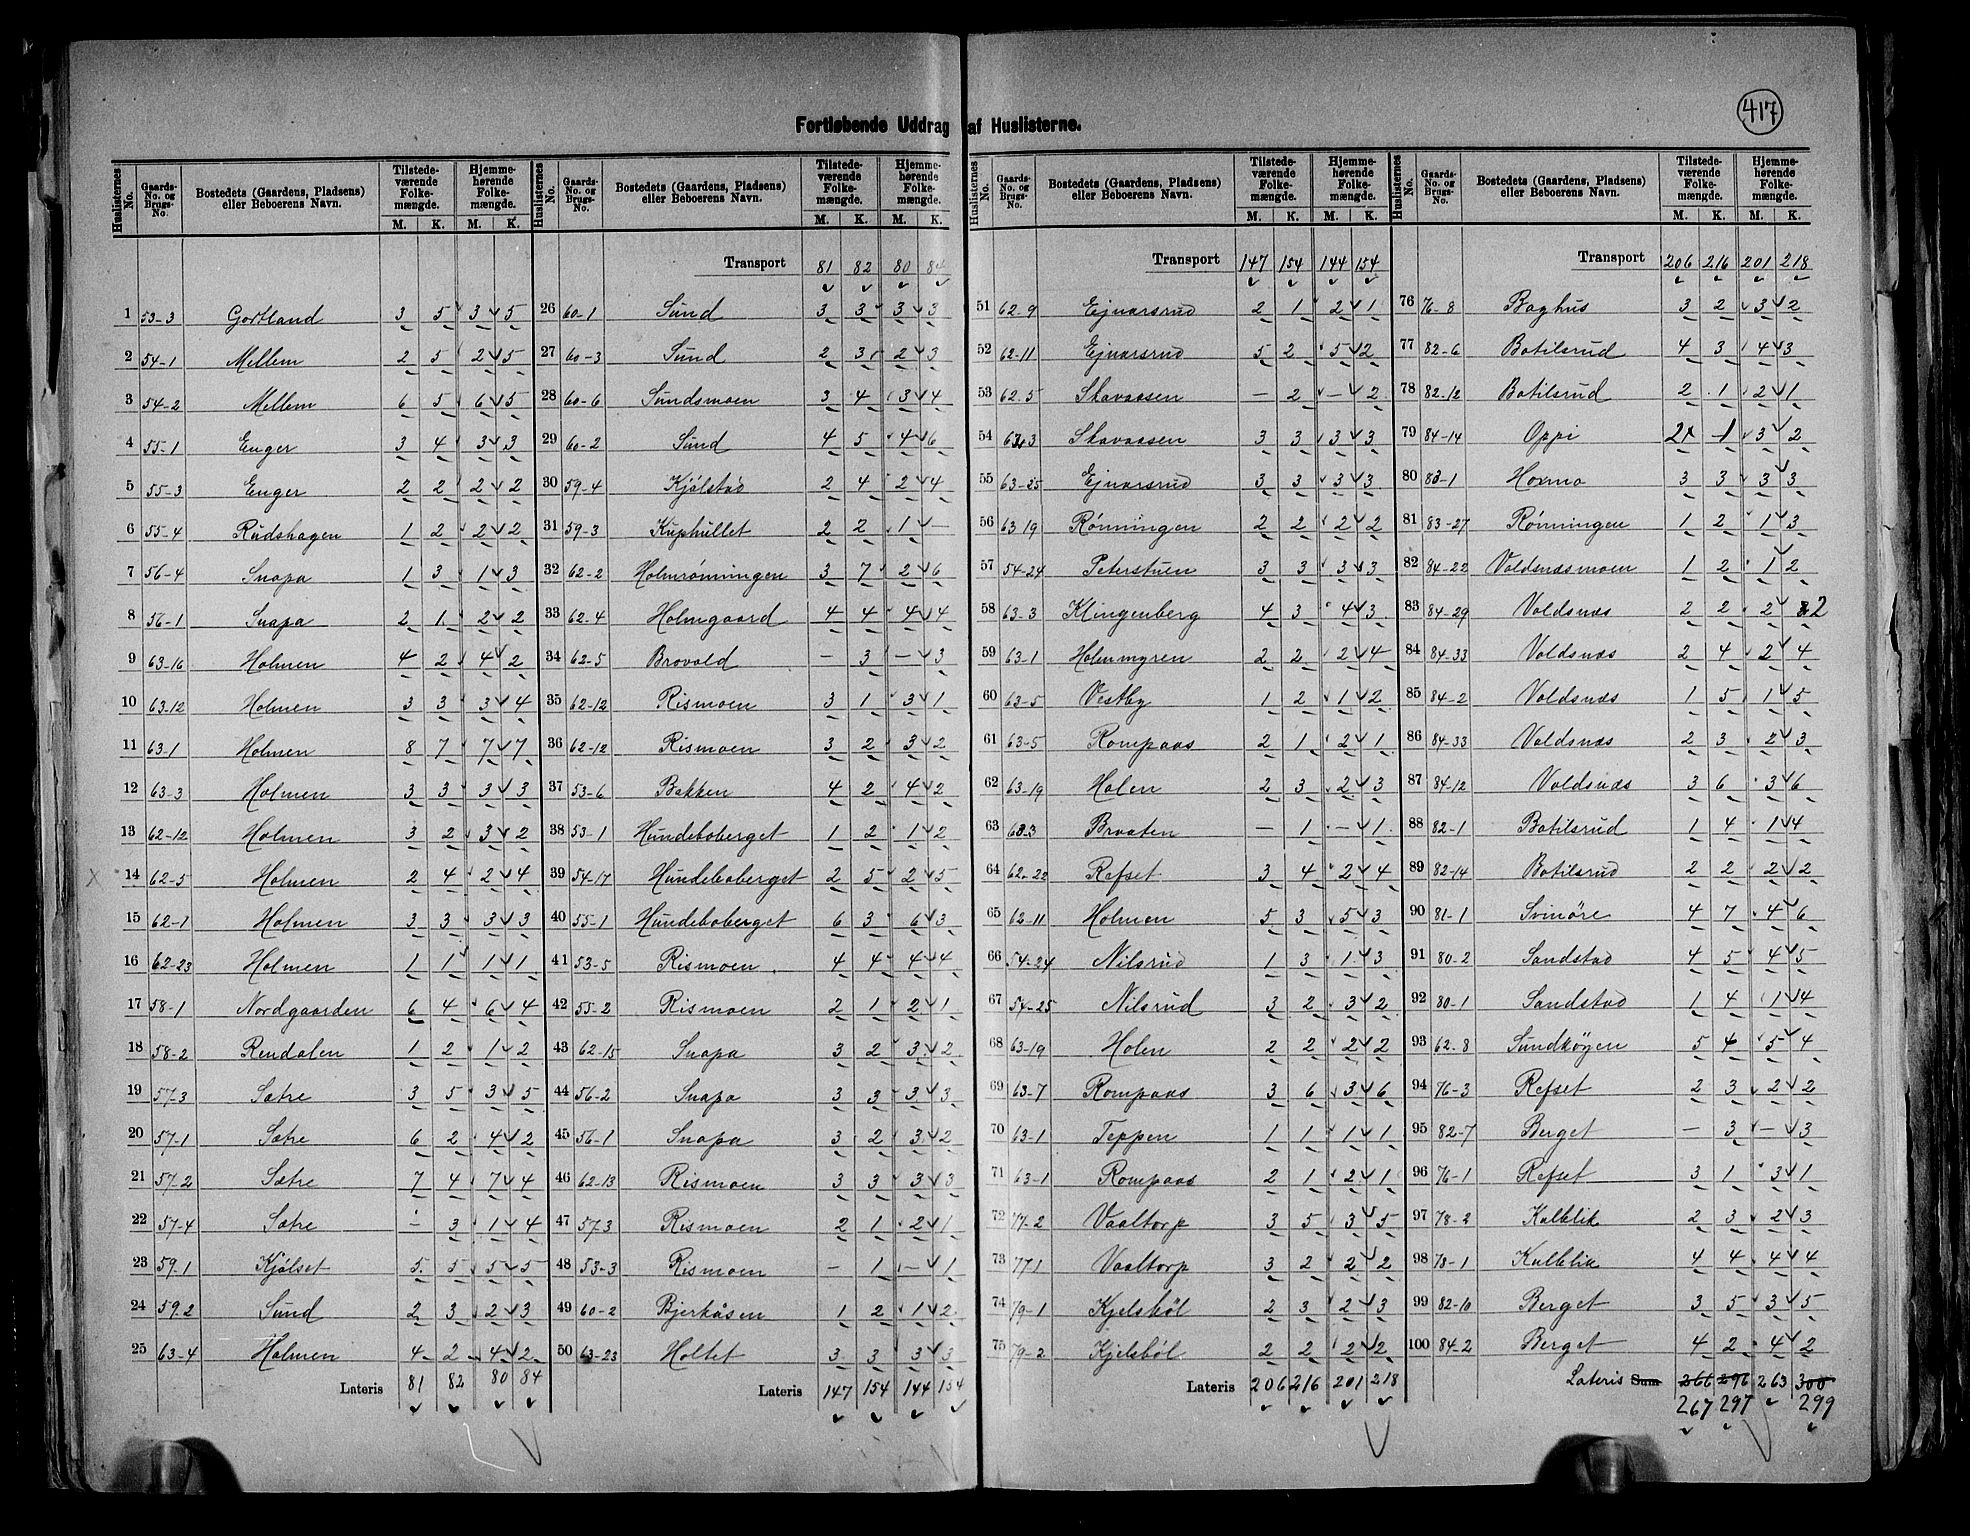 417
Fortløbende Uddrag af Huslisterne.
Huslisternes No. | Gaards-No. og Brugs-No. | Bostedets (Gaardens, Pladsens) eller Beboerens Navn. | Tilstedeværende Folkemængde. M. K. | Hjemmehørende Folkemængde. M. K.
1 53-3 Gortland 3 5 3 5
2 54-1 Mellem 2 5 2 5
3 54-2 Mellem 6 5 6 5
4 55-1 Enger 3 4 3 3
5 55-3 Enger 2 2 2 2
6 55-4 Rudshagen 1 2 2 2
7 56-4 Snapa 1 3 1 3
8 56-1 Snapa 2 1 2 2
9 63-16 Holmen 4 2 4 2
10 63-12 Holmen 3 3 3 4
11 63-1 Holmen 8 7 7 7
12 63-3 Holmen 3 3 3 3
13 62-12 Holmen 3 2 3 2
14 62-5 Holmen 2 4 2 4
15 62-1 Holmen 3 3 3 3
16 62-23 Holmen 1 1 1 1
17 58-1 Nordgaarden 6 4 6 4
18 58-2 Rendalen 1 2 1 2
19 57-3 Sætre 3 5 3 5
20 57-1 Sætre 6 2 4 2
21 57-2 Sætre 7 4 7 4
22 57-4 Sætre – 3 1 4
23 59-1 Kjølset 5 5 5 5
24 59-2 Sund 2 3 2 3
25 63-4 Holmen 4 2 4 2
Lateris 81 82 80 84
Huslisternes No. | Gaards-No. og Brugs-No. | Bostedets (Gaardens, Pladsens) eller Beboerens Navn. | Tilstedeværende Folkemængde. M. K. | Hjemmehørende Folkemængde. M. K.
Transport 81 82 80 84
26 60-1 Sund 3 3 3 3
27 60-3 Sund 2 3 2 3
28 60-6 Sundsmoen 3 4 3 4
29 60-2 Sund 4 5 4 6
30 59-4 Kjølstad 2 4 2 4
31 59-3 Kuphullet 2 2 1 –
32 62-2 Holmrønningen 3 7 2 6
33 62-4 Holmgaard 4 4 4 4
34 62-5 Brovold – 3 – 3
35 62-12 Rismoen 3 1 3 1
36 62-12 Rismoen 3 2 3 2
37 53-6 Bakken 4 2 4 2
38 53-1 Hundeboberget 1 2 1 2
39 54-17 Hundeboberget 2 5 2 5
40 55-1 Hundeboberget 6 3 6 3
41 53-5 Rismoen 4 4 4 4
42 55-2 Rismoen 2 1 2 1
43 62-15 Snapa 3 2 3 2
44 56-2 Snapa 3 3 3 3
45 56-1 Snapa 3 2 3 2
46 62-13 Rismoen 3 3 3 3
47 57-3 Rismoen 2 1 2 1
48 53-3 Rismoen – 1 – 1
49 60-2 Bjerkåsen 1 2 1 2
50 63-23 Holtet 3 3 3 3
Lateris 147 154 144 154
Huslisternes No. | Gaards-No. og Brugs-No. | Bostedets (Gaardens, Pladsens) eller Beboerens Navn. | Tilstedeværende Folkemængde. M. K. | Hjemmehørende Folkemængde. M. K.
Transport 147 154 144 154
51 62-9 Ejnarsrud 2 1 2 1
52 62-11 Ejnarsrud 5 2 5 2
53 62.5 Skavaasen – 2 – 2
54 Skavaasen 3 3 3 3
55 63-25 Ejnarsrud 3 3 3 3
56 63-19 Rønningen 2 2 2 2
57 54-24 Peterstuen 3 3 3 3
58 63-3 Klingenberg 4 3 4 3
59 63-1 Holmmyren 2 2 2 4
60 63-5 Vestby 1 2 1 2
61 63-5 Rompaas 2 1 2 1
62 63-19 Holen 2 3 2 3
63 Braaten – 1 – 1
64 62-22 Refset 3 4 2 4
65 62-11 Holmen 5 3 5 3
66 54-24 Nilsrud 1 3 1 3
67 54-25 Nilsrud 3 2 3 2
68 63-19 Holen 2 2 2 2
69 63-7 Rompaas 3 6 3 6
70 63-1 Teppen 1 1 1 1
71 63-1 Rompaas 2 1 2 1
72 77-2 Vaaltorp 3 5 3 5
73 77-1 Vaaltorp 3 2 2 2
74 79-1 Kjelsbøl 2 3 2 3
75 79-2 Kjelsbøl 2 2 2 2
Lateris 206 216 201 218
Huslisternes No. | Gaards-No. og Brugs-No. | Bostedets (Gaardens, Pladsens) eller Beboerens Navn. | Tilstedeværende Folkemængde. M. K. | Hjemmehørende Folkemængde. M. K.
Transport 206 216 201 218
76 76-8 Baghus 3 2 3 2
77 82-6 Botilsrud 4 3 4 3
78 82-12 Botilsrud 2 1 2 1
79 84-14 Oppi 2 1 3 2
80 83-1 Hoxmo 3 3 3 3
81 83-27 Rønningen 1 2 1 3
82 84-22 Voldsnæsmoen 1 2 1 2
83 84-29 Voldsnæs 2 2 2 2
84 84-33 Voldsnæs 2 4 2 4
85 84-2 Voldsnæs 1 5 1 5
86 84-33 Voldsnæs 2 3 2 3
87 84-12 Voldsnæs 3 6 3 6
88 82-1 Botilsrud 1 4 1 4
89 82-14 Botilsrud 2 2 2 2
90 81-1 Svinöre 4 7 4 6
91 80-2 Sandstad 4 5 4 5
92 80-1 Sandstad 1 4 1 4
93 62-8 Sundköyen 5 4 5 4
94 76-3 Refset 2 3 2 2
95 82-7 Berget – 3 – 3
96 76-1 Refset 3 1 3 1
97 78-2 Kalblik 2 3 2 3
98 78-1 Kalblik 4 4 4 4
99 82-10 Berget 3 5 3 5
100 84-2 Berget 4 2 4 2
Lateris Sum 266 296 263 300
267 297 299